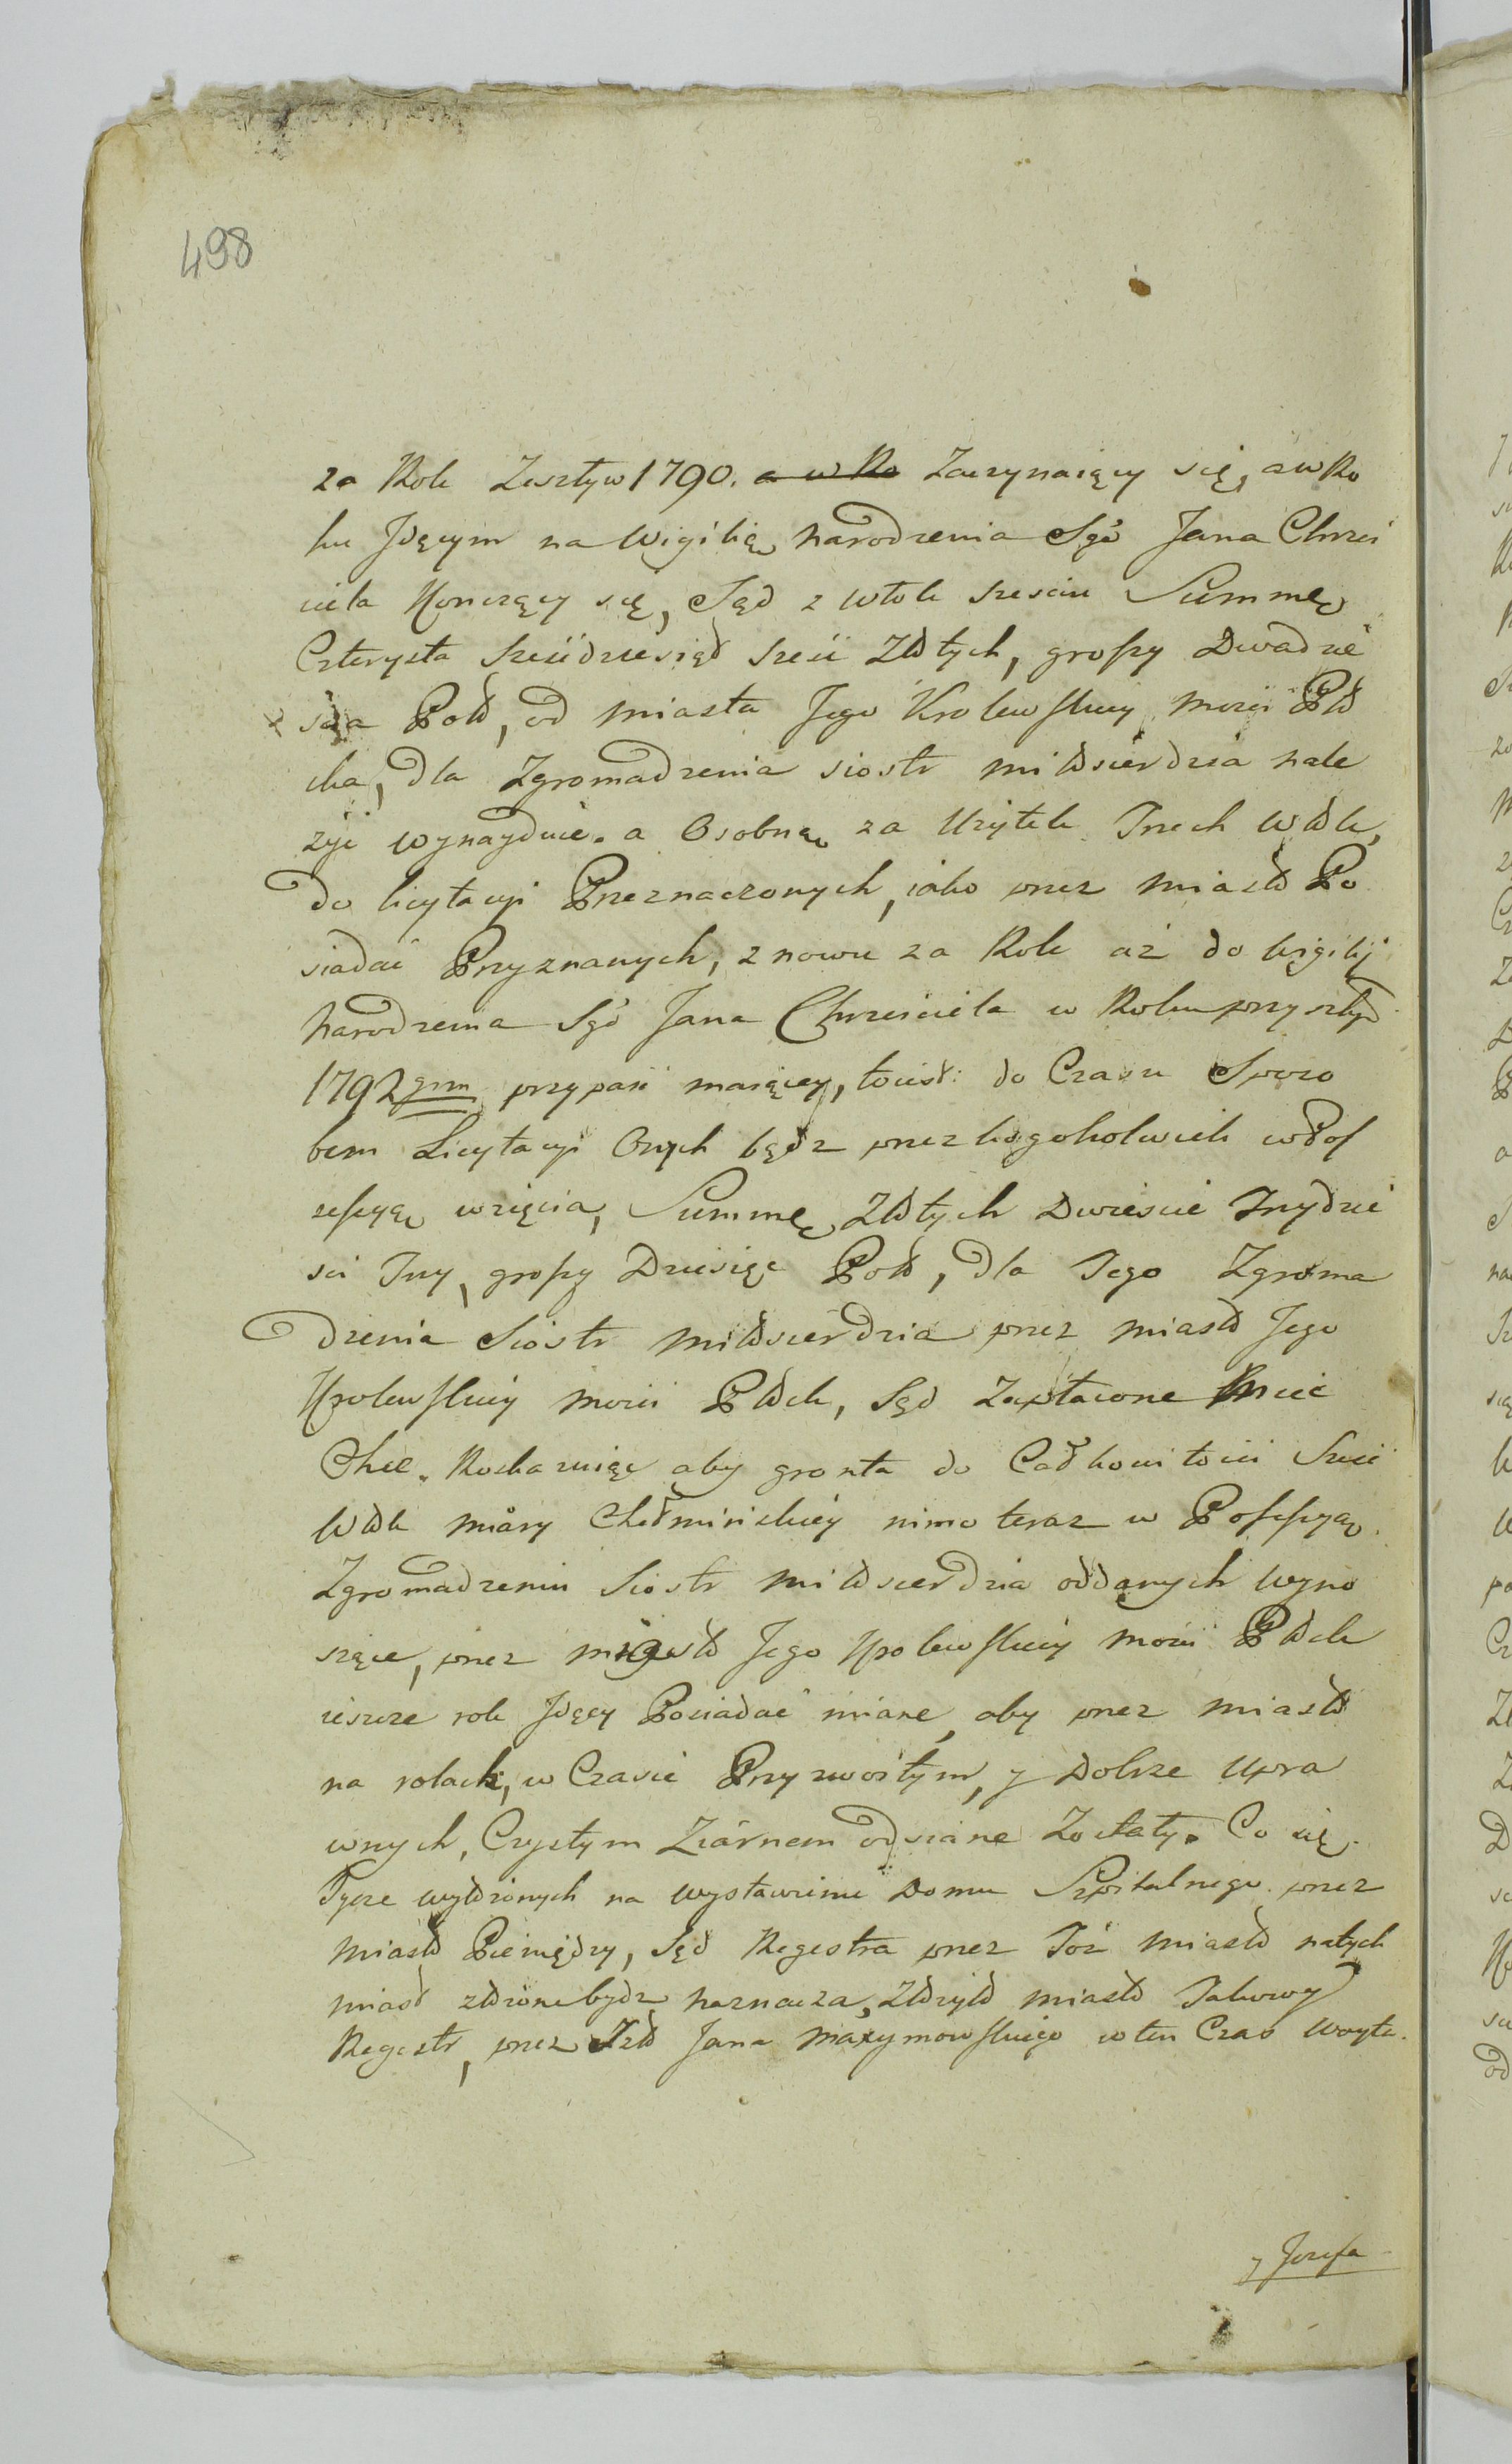 498
za Rok Zeszły w 1790. a w Ro Zaczynaiący się, a w Ro
ku Jdącym na Wigilią Narodzenia Sgo Jana Chrzci
ciela Konczący się, Sąd z włok szesciu Summę
Czterysta Szesćdziesiąt szesć Złłtych, groszy Dwadzie
scia Poll, od Miasta Jego Krolewskiey Mosci Pło
cka, Dla Zgromadzenia siostr Miłłsierdzia nale
żyć wynayduie. a Osobną za Użytek Trzech Włłk,
Do licytacyi Przeznaczonych, iako przez Miasto Po
siadać Przyznanych, znowu za Rok aż do Wigilij
Narodzenia Sgo Jana Chrzciciela w Roku przyszłym
1792gim przypaść maiącey, toiest: do Czasu Sposo
bem Licytacyi Onych bądz przez kogokolwiek w Pos
sessyą wzięcia, Summę Złłtych Dwiescie Trzydzie
sci Trzy, groszy Dziesięć Poll, Dla Tego Zgroma
dzenia Siostr Miłłsierdzia przez Miasto Jego
Krolewskiey Mosci Płłck, Sąd Zapłacone Mieć
Chce. Rozkazuiąc aby gronta do Całkowitości Szesć
Włłk miary Chełmińskiey nimo teraz w Possessyą
Zgromadzeniu Siostr Miłłsierdzia oddanych wyno
szące, przez Miasto Jego Krolewskiey Mosci Płłck
ieszcze rok Jdący Posiadać miane, aby przez Miasto
na rolach, w Czasie Przyzwoitym, y Dobrze Upra
wnych, Czystym Ziarnem odsiane Zostały. Co się
Tycze wyłożonych na Wystawienie Domu Szpitalnego przez
Miasto Pieniędzy, Sąd Regestra przez Toż Miasto natych
miast złożone bydz naznacza, Złożyło Miasto Takowy
Regestr, przez Jana Maxymowskiego w ten Czas Woyta
y Jozefa